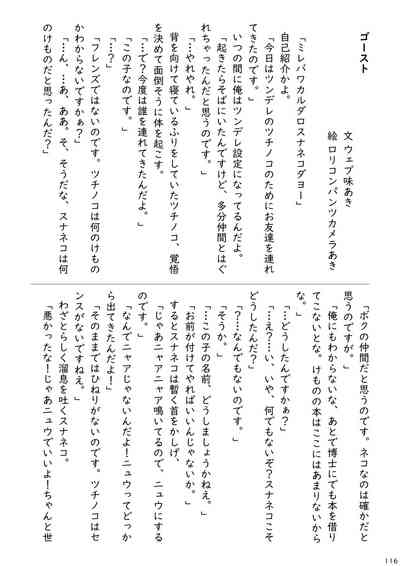 ゴースト
文 ウェブ味あき
絵 ロリコンパンツカメラあき
「ミレバワカルダロスナネコダヨー」
自己紹介かよ。
「今日はツンデレのツチノコのためにお友達を連れ
てきたのです。」
いつの間に俺はツンデレ設定になってるんだよ。
「起きたらそばにいたんですけど、多分仲間とはぐ
れちゃったんだと思うのです。」
「…やれやれ。」
背を向けて寝ているふりをしていたツチノコ、覚悟
を決めて面倒そうに体を起こす。
「…で？今度は誰を連れてきたんだよ。」
「この子なのです。」
「…？」
「フレンズではないのです。ツチノコは何のけもの
かわからないですかぁ？」
「…ん、…あ、ああ。そ、そうだな、スナネコは何
のけものだと思ったんだ？」
「ボクの仲間だと思うのです。ネコなのは確かだと
思うのですが。」
「俺にもわからないな、あとで博士にでも本を借り
てこないとな。けものの本はここにはあまりないから
な。」
「…どうしたんですかぁ？」
「…え？…い、いや、何でもないぞ？スナネコこそ
どうしたんだ？」
「？…なんでもないのです。」
「そうか。」
「…この子の名前、どうしましょうかねえ。」
「お前が付けてやればいいんじゃないか。」
するとスナネコは暫く首をかしげ、
「じゃあニャアニャア鳴いてるので、ニュウにする
のです。」
「なんでニャアじゃないんだよ！ニュウってどっか
ら出てきたんだよ！」
「そのままではひねりがないのです。ツチノコはセ
ンスがないですねえ。」
わざとらしく溜息を吐くスナネコ。
「悪かったな！じゃあニュウでいいよ！ちゃんと世
116